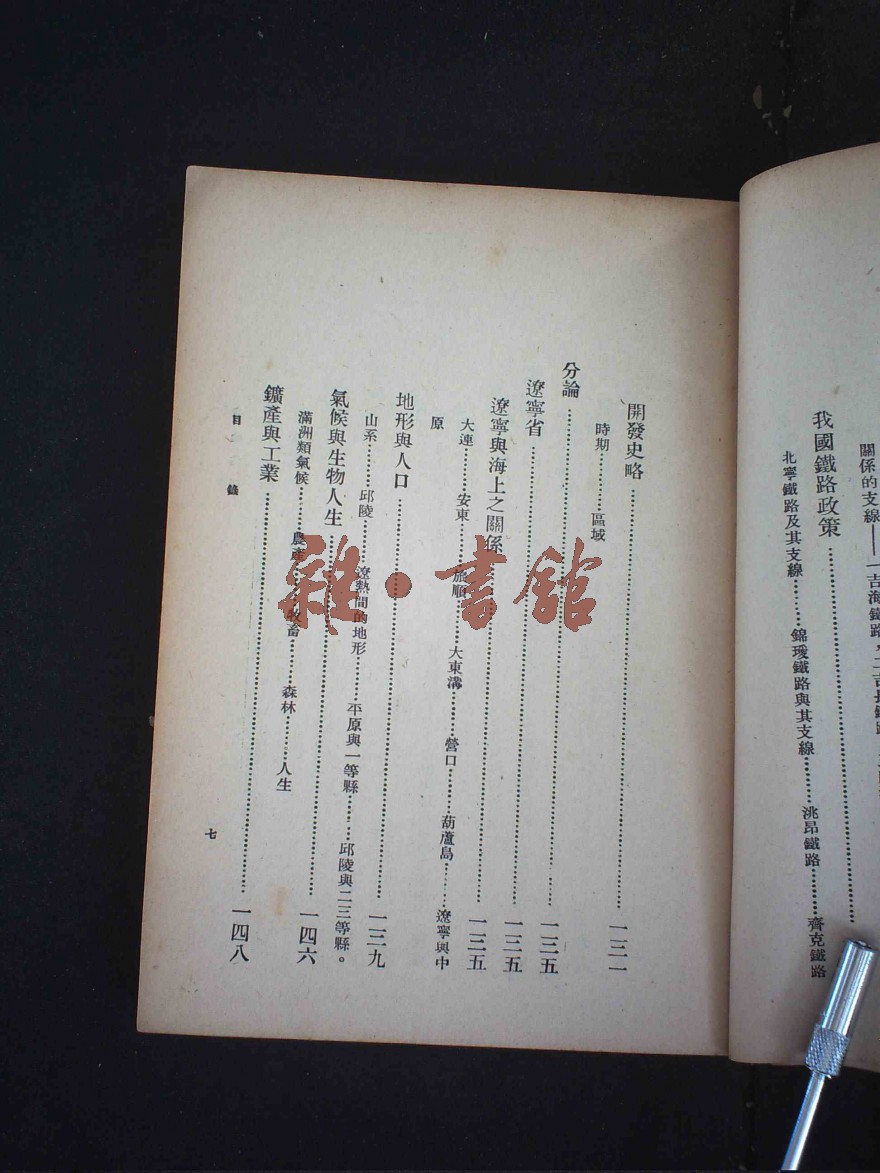 關係的支線——一吉海鐵路
我國鐵路政策
北寧鐵路及其支線………錦璦鐵路與其支線………洮昂鐵路………齊克鐵路
開發史略………一三一
時期………區域
分論………一三五
遼寧省………一三五
遼寧與海上之關係………一三五
大連………安東………旅順………大東溝………營口………葫蘆島………遼寧與中
原
地形與人口………一三九
山系………邱陵………遼熱間的地形………平原與一等縣………邱陵與二三等縣。
氣候與生物人生………一四六
滿洲類氣候………農產………牧畜………森林………人生
鑛產與工業………一四八
目錄
七
雜·書館